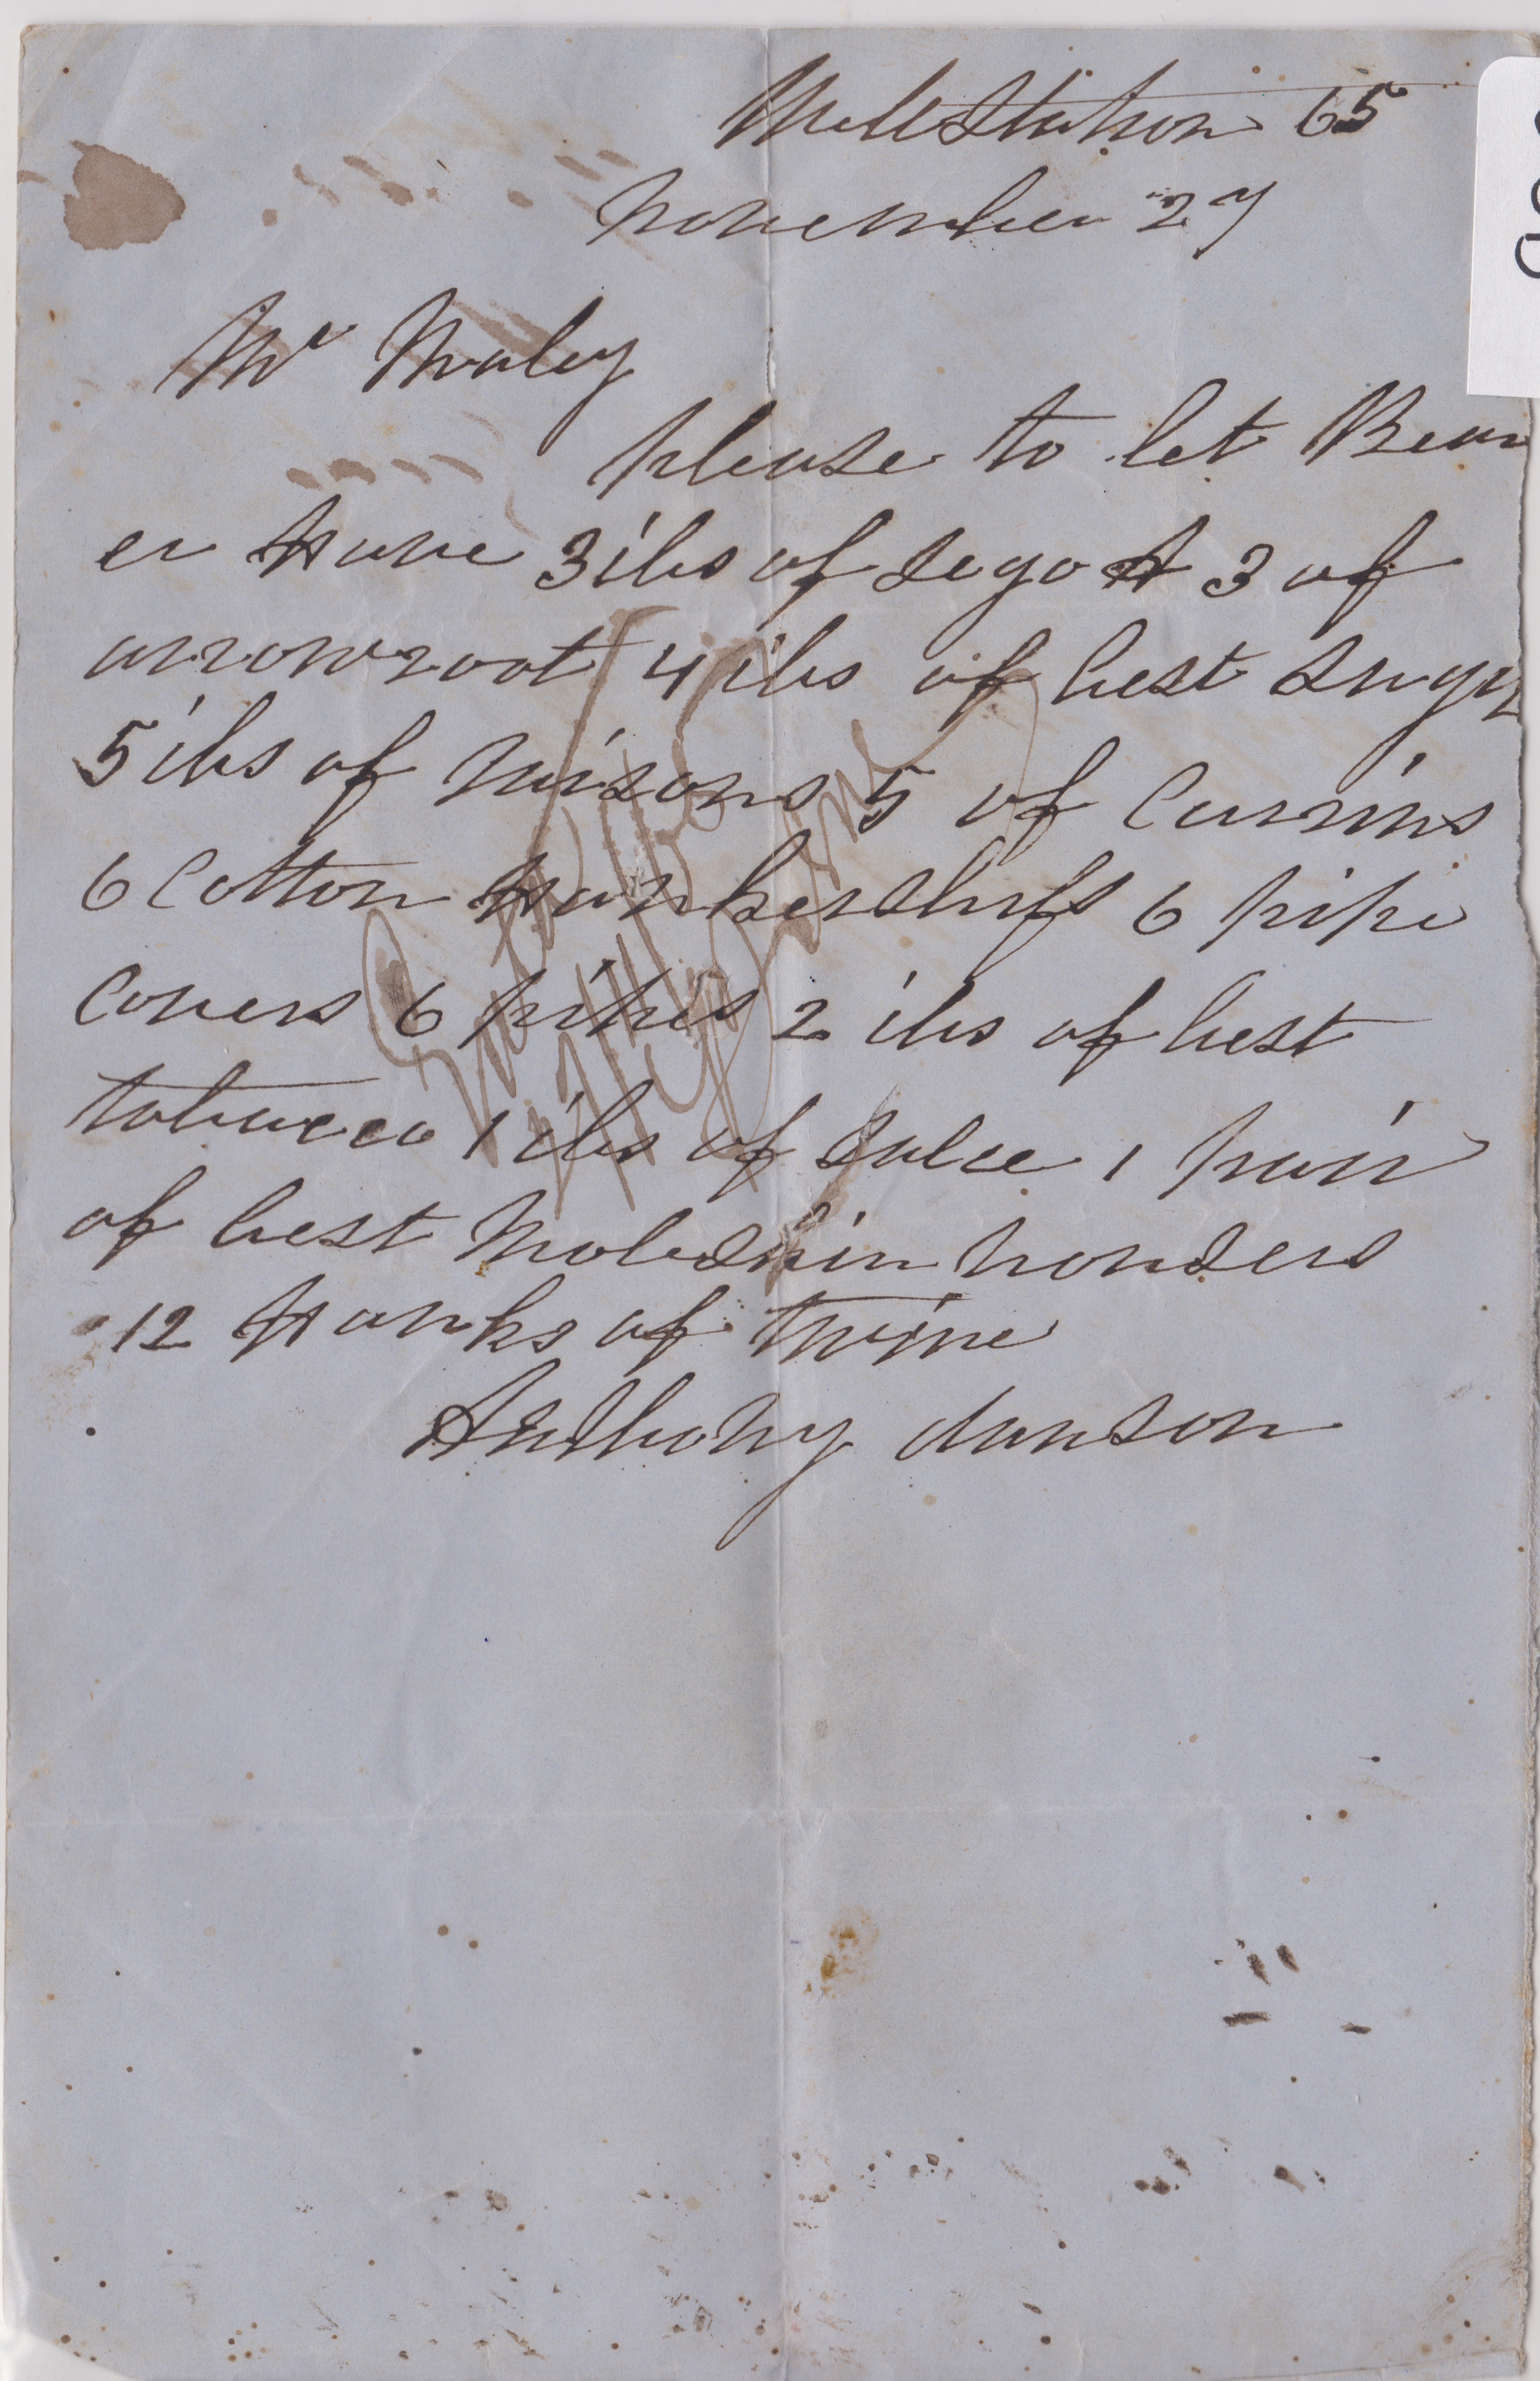 Mill Station 65
November 27
Mr Maley
please to let Bear
er Have 3 ilbs of sego & 3 of
arrowroot 4 ilbs of best sugar
5 ilbs of raisons 5 of Currins
6 Cotton Hankershifs 6 pipe
Covers 6 pipes 2 ilbs of best
tobacco 1 ilbs of salce 1 pair
of best Moleskin trousers
12 Hanks of twine
Anthony danson